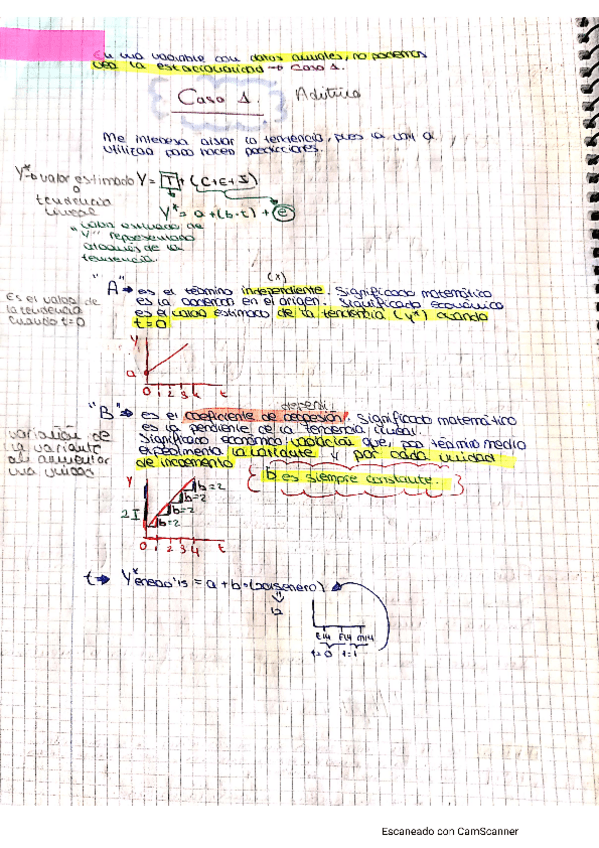 En una variable con datos anuales, no podemos
ver la estacionalidad → Caso 1.
Caso 1. Aditiva
Me interesa aislar la tendencia, pues la voy a
utilizar para hacer predicciones.
Y*→ valor estimado Y = T + (C+E+I)
o
tendencia
lineal
Y* = a + (b·t) + e
"valor estimado de
Y" representado
a través de la
tendencia.
(x)
"A" → es el término independiente. Significado matemático
es la ordenada en el origen. Significado económico
es el valor estimado de la tendencia (y*) cuando
t=0
Es el valor de
la tendencia
cuando t=0
Y
a
0 1 2 3 4 t
"B" → es el coeficiente de regresión. Significado matemático
es la pendiente de la tendencia lineal.
Significado económico: variación que, por término medio
experimenta la variante y por cada unidad
de incremento
variación de
la variante
al aumentar
una unidad
b es siempre constante.
Y
b=2
b=2
b=2
b=2
2
0 1 2 3 4 t
t → Y* enero'15 = a + b·(2015enero)
12
E14 F14 M14
t=0 t=1
Escaneado con CamScanner